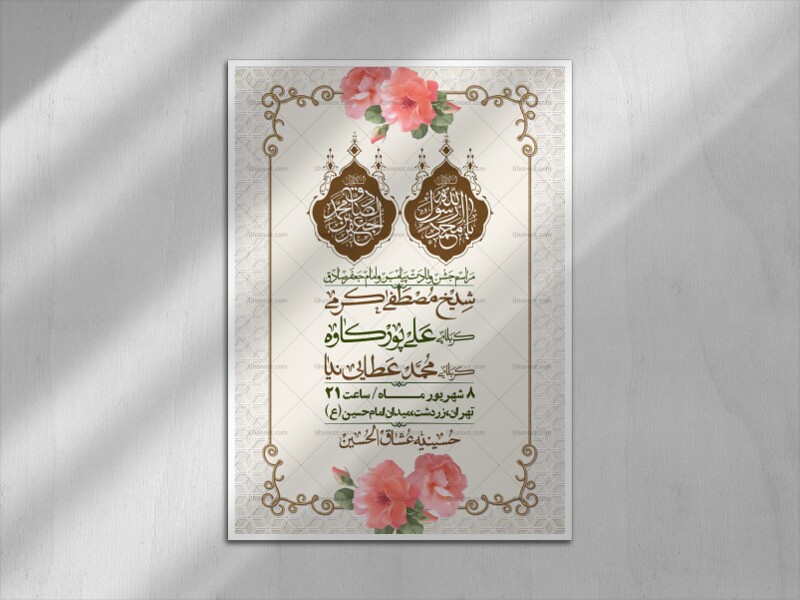 یا محمد رسول الله
جعفر بن محمد الصادق
مراسم جشن ولادت پیامبر و امام جعفر صادق
شیخ مصطفی کرمی
کربلایی علی پورکاوه
کربلایی محمد عطایی نیا
۸ شهریور مـــاه / ساعت ۲۱
تهران، زردشت، میدان امام حسین (ع)
حسینیه عشاق الحسین